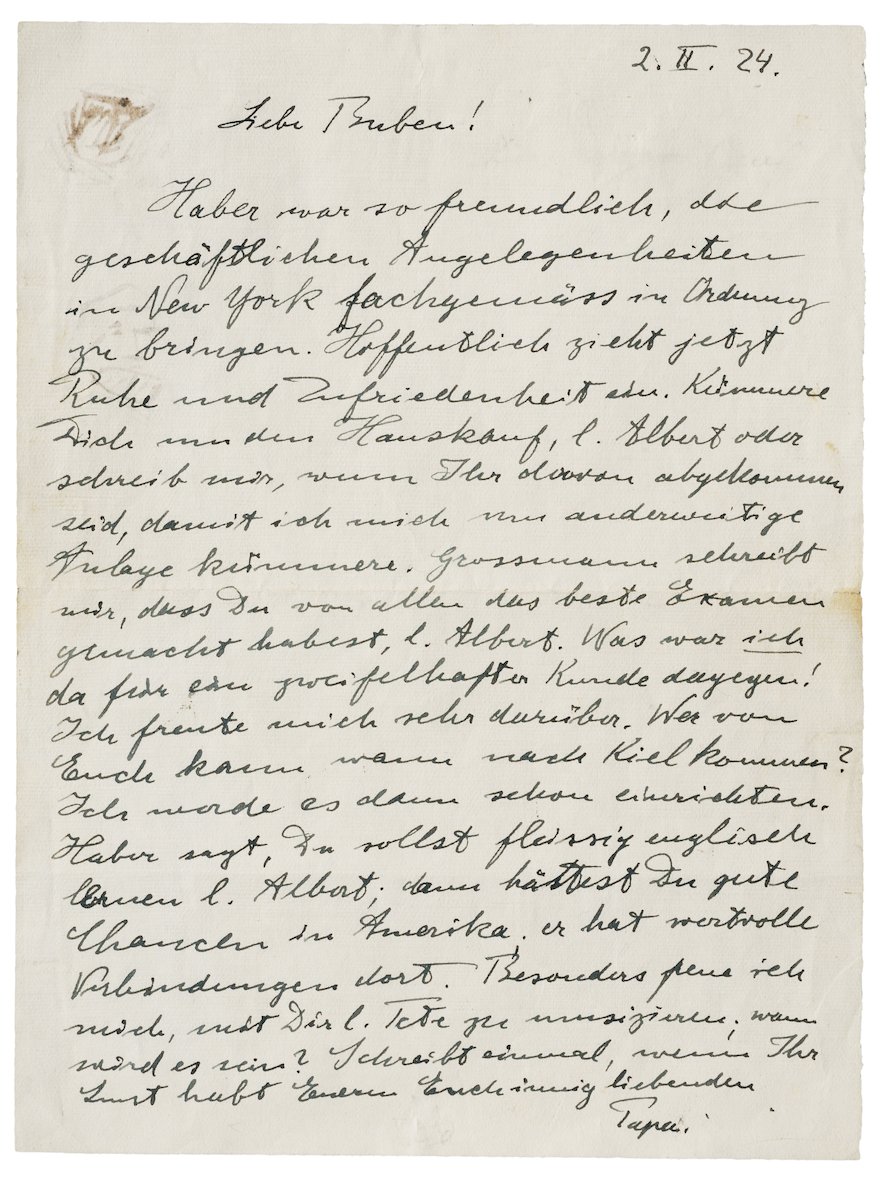 2. II. 24.
Liebe Buben!
Haber war so freundlich, die
geschäftlichen Angelegenheiten
in New York fachgemäss in Ordnung
zu bringen. Hoffentlich zieht jetzt
Ruhe und Zufriedenheit ein. Kümmere
Dich um den Hauskauf, l. Albert oder
schreib mir, wenn Ihr davon abgekommen
seid, damit ich mich um anderweitige
Anlage kümmere. Grossmann schreibt
mir, dass Du von allen das beste Examen
gemacht habest, l. Albert. Was war ich
da für ein zweifelhafter Kunde dagegen!
Ich freute mich sehr darüber. Wer von
Euch kann wann nach Kiel kommen?
Ich werde es dann schon einrichten.
Haber sagt, Du sollst fleissig englisch
lernen l. Albert; dann hättest Du gute
Chancen in Amerika, er hat wertvolle
Verbindungen dort. Besonders freue ich
mich, mit Dir l. Tete zu musizieren; wann
wird es sein? Schreibt einmal, wenn Ihr
Lust habt Euerm Euch innig liebenden
Papa.